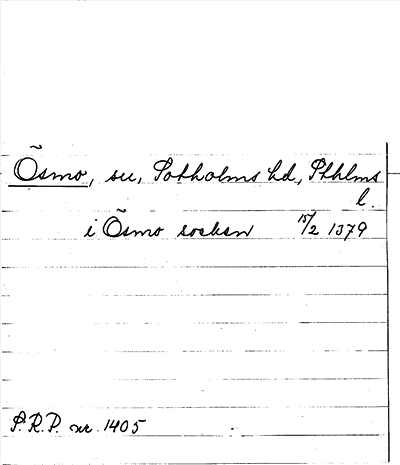 Õsmo, sn, Sotholms hd, Sthlms
l.
i Õsmo socken 15/2 1379
S.R.P. nr. 1405